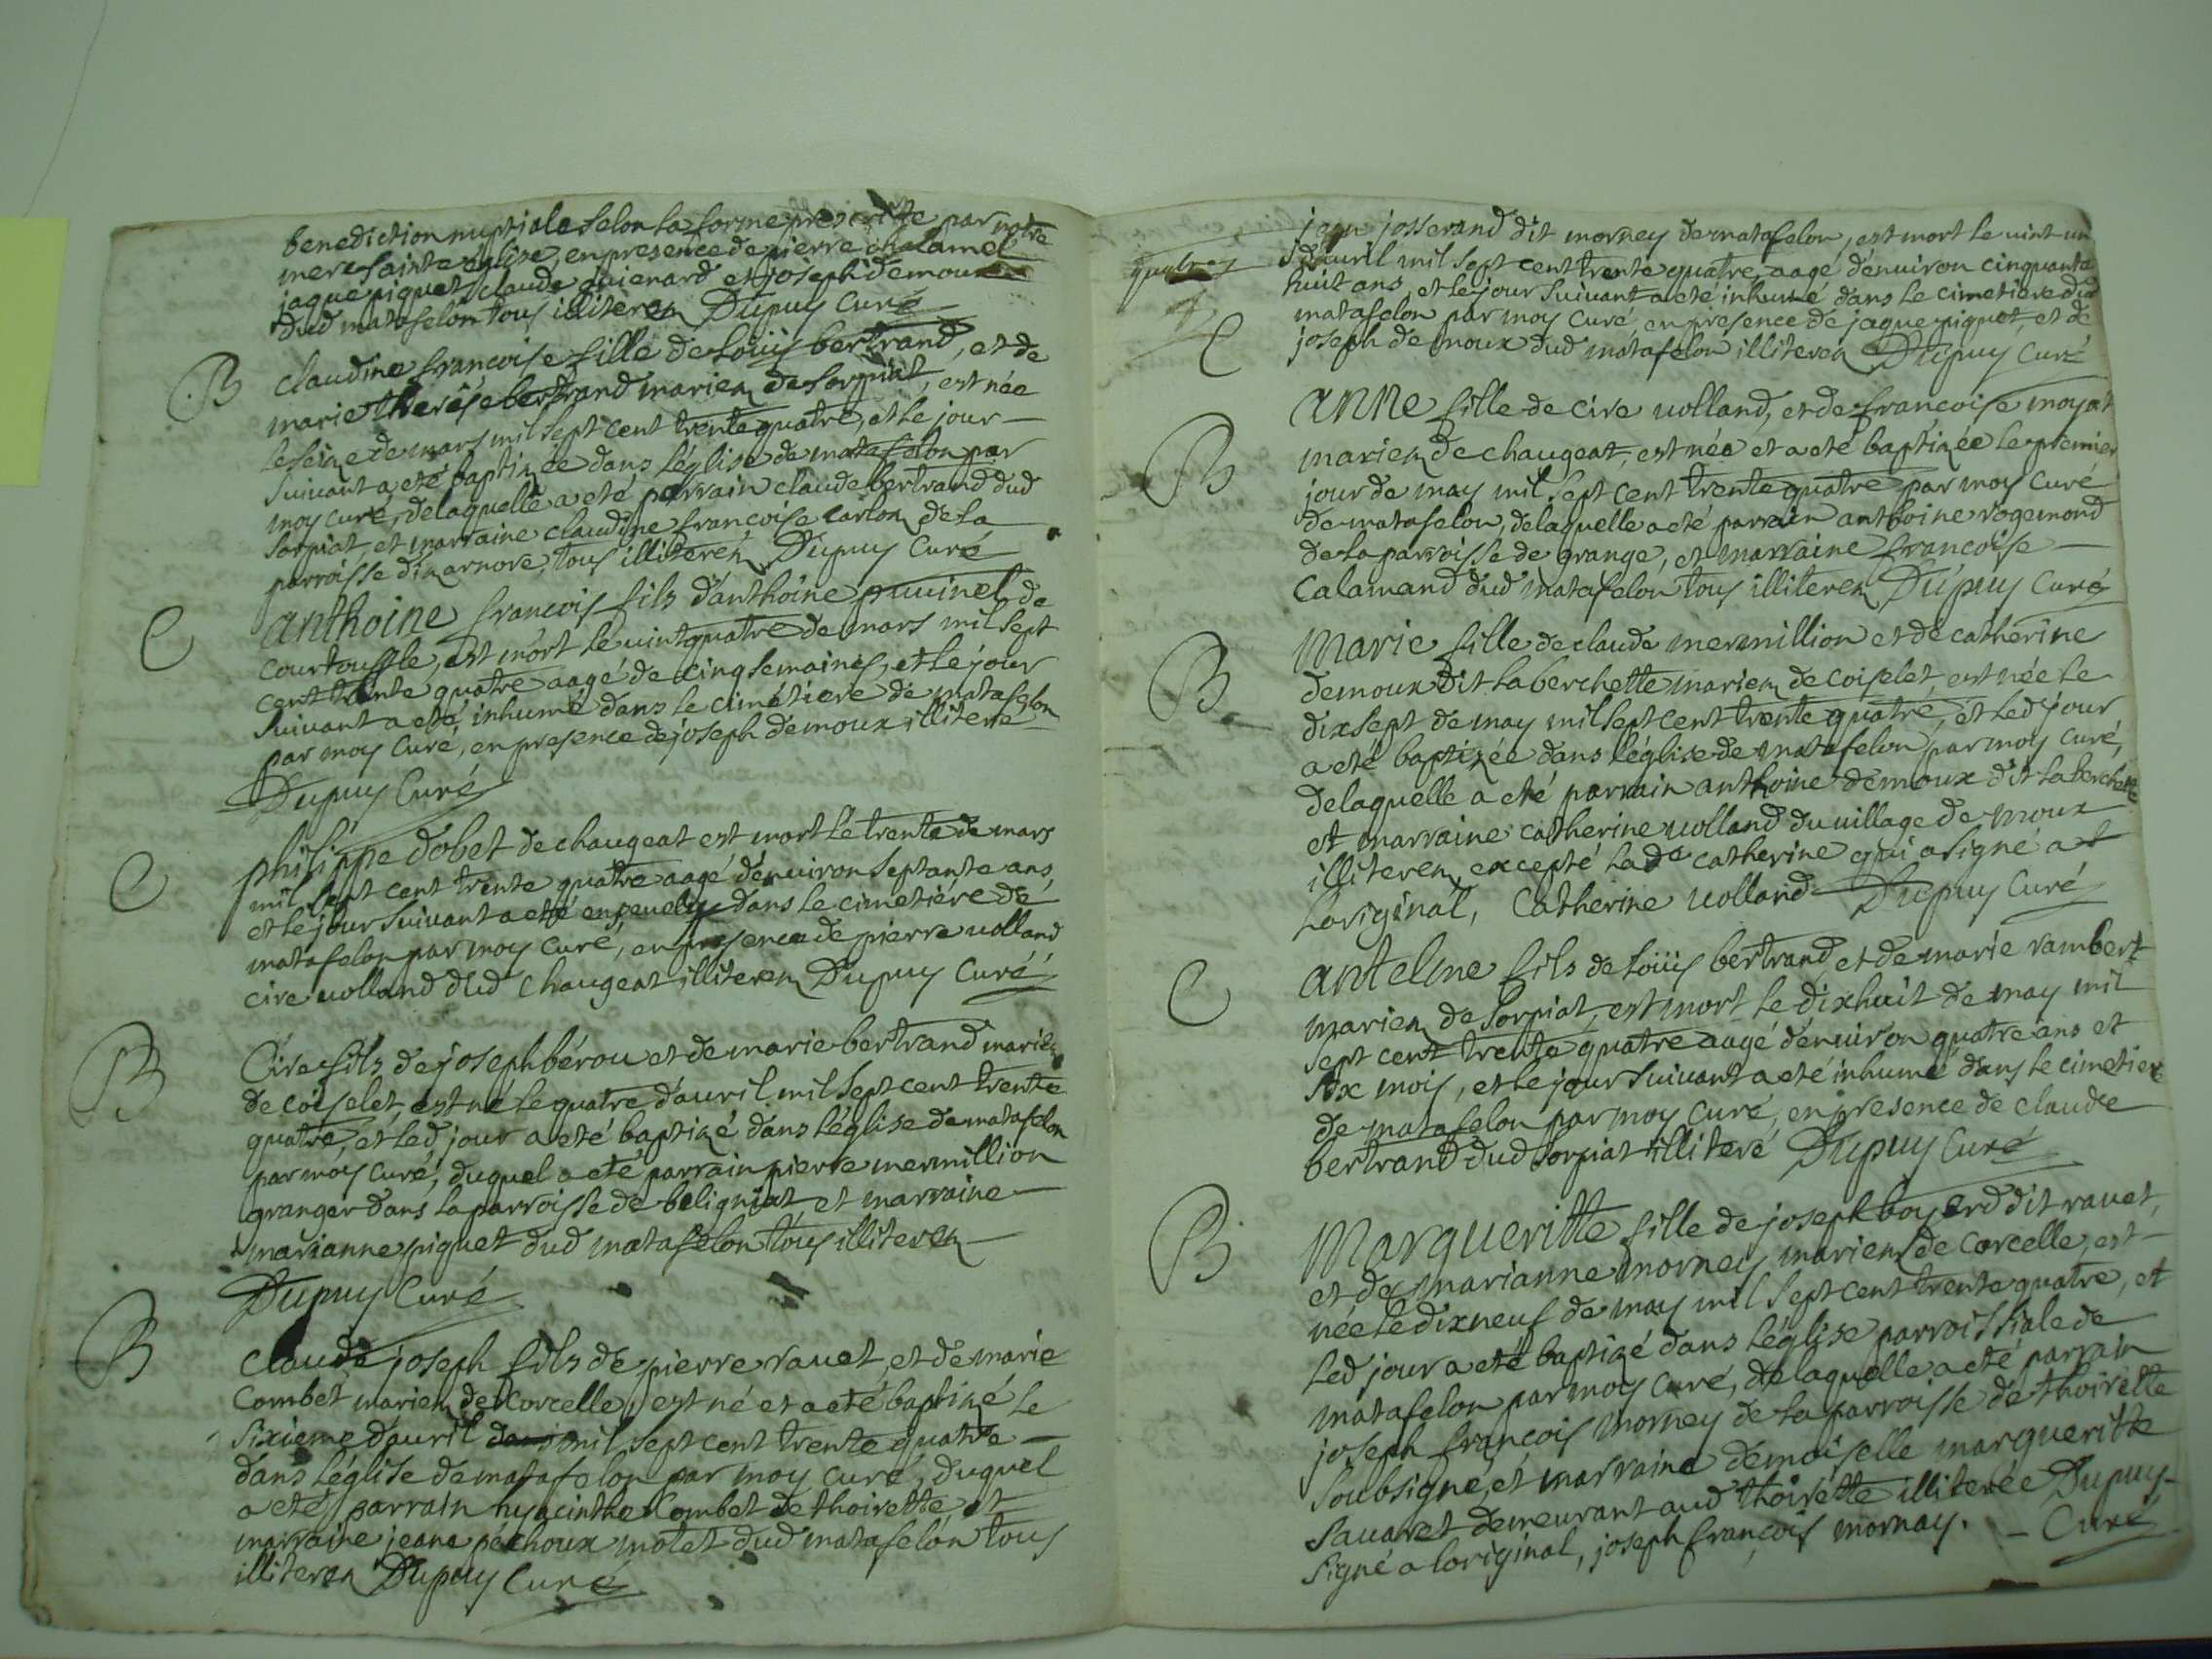 benediction nuptiale selon la forme prescritte par notre
mere sainte eglise, en presence de pierre chalamel
jaque piquet, claude guienard et joseph demoux
dud matafelon tous illiterez Dupuy Curé
B claudine francoise fille de Loüis bertrand, et de
marie therése bertrand mariez de sorpiat, est née
le seize de mars mil sept cent trente quatre, et le jour
suivant a eté baptizée dans l'église de matafelon par
moy curé, delaquelle a eté parrain claude bertrand dud
sorpiat, et marraine claudine francoise carlon de la
parroisse dizernore, tous illiteréz Dupuy Curé
C anthoine francois fils d'anthoine puvinel de
courtouffle, est mort le vint quatre de mars mil sept
cent trente quatre aagé de cinq semaines, et le jour
suivant a eté inhumé dans le cimétiere de matafelon
par moy Curé, en presence de joseph demoux illiteré
Dupuy Curé
C philippe dobet de chaugeat est mort le trente de mars
mil sept cent trente quatre aagé denuiron septante ans,
et le jour suivant a eté ensevely dans le cimetiére de
matafelon par moy Curé, en presence de pierre volland
cire volland dud Chaugeat illiterez Dupuy Curé
B Cire fils de joseph bérou et de marie bertrand mariez
de coiselet, est né le quatre d'auril mil sept cent trente
quatre, et led jour a eté baptizé dans l'église de matafelon
par moy Curé, duquel a eté parrain pierre mermillion
granger dans la parroisse de béligniat et marraine
marianne piquet dud matafelon tous illiterez
Dupuy Curé
B Claude joseph fils de pierre rauet, et de marie
Combet mariez de Corcelle, est né et a eté baptizé le
sixieme d'auril mil sept cent trente quatre
dans l'église de matafelon par moy Curé, duquel
a eté parrain hyacinthe Combet de thoirette et
marraine jeane péchoux molet dud matafelon tous
illiterez Dupuy Curé
jean josserand dit morney de matafelon, est mort le vint un
d'auril mil sept cent trente quatre, aagé d'enuiron cinquante
huit ans, et le jour suivant a eté inhumé dans le cimetiere dud
C matafelon par moy Curé, en presence de jaque piquet, et de
joseph de moux dud matafelon illiterez Dupuy Curé
anne fille de cire volland, et de francoise moyat
B mariez de chaugeat, est née et a eté baptizée le premier
jour de may mil sept cent trente quatre par moy Curé
de matafelon, delaquelle a eté parrain anthoine rogemond
de la parroisse de grange, et marraine francoise
Calamand dud matafelon tous illiterez Dupuy Curé
Marie fille de claude mermillion et de catherine
B demoux dit laberchette mariez de coiselet, est née le
dixsept de may mil sept cent trente quatre, et led jour
a eté baptizée dans l'église de matafelon par moy Curé,
delaquelle a eté parrain anthoine demoux dit laberchette
et marraine catherine volland du village de moux
illiterez, excepté lade catherine qui a signé a
l'original, Catherine volland Dupuy Curé
C antelme fils de Loüis bertrand, et de marie rambert
mariez de sorpiat, est mort le dixhuit de may mil
sept cent trente quatre aagé d'enuiron quatre ans et
six mois, et le jour suivant a eté inhumé dans le cimetiere
de matafelon par moy Curé, en presence de claude
bertrand dud sorpiat illiteré Dupuy Curé
B Margueritte fille de joseph boyerd dit rauet,
et de marianne morney mariez de Corcelle, est
née le dixneuf de may mil sept cent trente quatre, et
led jour a eté baptizé dans l'église parroissiale de
matafelon par moy Curé, delaquelle a eté parrain
joseph françois morney de la parroisse de thoirette
soubsigné, et marraine demoiselle margueritte
Sauaret demeurant aud thoirette illiterée Dupuy
Signé a loriginal, joseph françois mornay. Curé